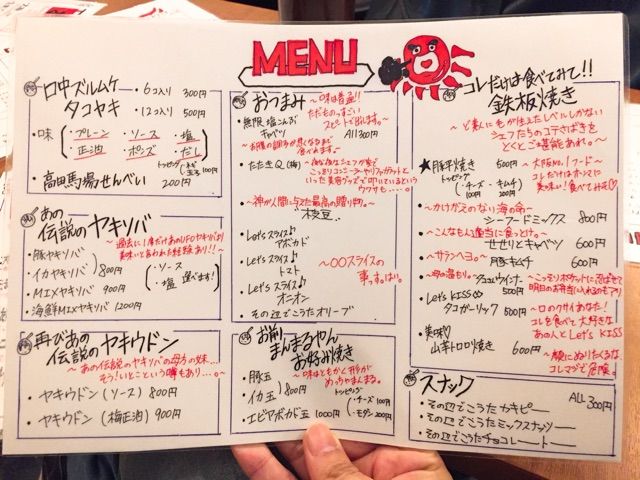 MENU
口中ズルムケ
タコヤキ
・6コ入り 300円
・12コ入り 500円
・味
・プレーン ・ソース ・塩
・正油 ・ポンズ ・だし
トッピング
ネギ
玉子 100円
・高田馬場せんべい 200円
あの
伝説のヤキソバ
~過去に1度だけあのUFOヤキソバより
美味いと言われた経験あり!!~
・豚ヤキソバ
・イカヤキソバ 800円
・MIXヤキソバ 900円
・海鮮MIXヤキソバ 1200円
・ソース
・塩
選べます!
再びあの
伝説のヤキウドン
~あの伝説のヤキソバの母方の妹…
そう!いとこという噂もあり…。~
・ヤキウドン(ソース) 800円
・ヤキウドン(梅正油) 900円
おつまみ
~味は普通!!
ただものっすごい
スピードで出します。~
・無限塩こんぶ
キャベツ
All 300円
・たたきQ(梅)
~神が人間に与えた最高の贈り物~
・枝豆
・Let's スライス♪
アボカド
・Let's スライス♪
トマト
・Let's スライス♪
オニオン
~〇〇スライスの
事っすばい。
・その辺でこうたオリーブ
お前
まんまるやん
お好み焼き
~味はともかく形が
めっちゃまんまる。
・豚玉
・イカ玉 800円
・エビアボカド玉 1000円
トッピング
・チーズ 100円
・モダン 200円
コレだけは食べてみて!!
鉄板焼き
シェフたちのコテさばきを
とくとご堪能あれ。~
★豚平焼き 500円
トッピング
・チーズ 100円
・キムチ 200円
~大阪No.1フード~
コレだけはホンマに
美味い!食べてみそ♡
~かけがえのない海の命~
・シーフードミックス 800円
~こんなもん適当に食っとけ。~
・せせりとキャベツ 600円
~サランヘヨ。~
・豚キムチ 600円
・タコさんウインナー 500円
~こっそりポケットに忍ばせて
明日のお弁当に入れるのもアリ
・Let's KISS♡
タコガーリック 500円
~口のクサイあなた!
コレを食べて大好きな
あの人とLet's KISS
・美味♡
山芋トロロ焼き 600円
~顔にぬりたくるな
コレマジで危険。
スナック
ALL 300円
・その辺でこうたカキピー
・その辺でこうたミックスナッツー
・その辺でこうたチョコレート